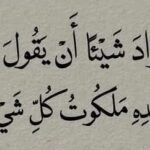 ادَ شَيْئًا أَنْ يَقُولَ
دِهِ مَلَكُوتُ كُلِّ شَيْ